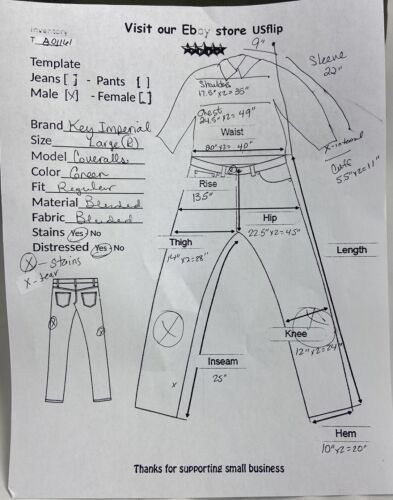 Visit our Ebay store USflip
Inventory
T A01161
9"
Sleeve
22"
Template
Jeans [ ] - Pants [ ]
Male [X] - Female [ ]
Shoulders
17.5"x2=35"
Chest
24.5"x2=49"
Waist
20"x2=40"
X-internal
Cuffs
5.5"x2=11"
Brand Key Imperial
Size Large(R)
Model Coveralls
Color Green
Fit Regular
Material Blended
Fabric Blended
Stains Yes/No
Distressed Yes/No
X - Stains
X - tear
Rise
13.5"
Hip
22.5"x2=45"
Thigh
14"x2=28"
Length
X
Knee
12"x2=24"
Inseam
25"
X
Hem
10"x2=20"
Thanks for supporting small business